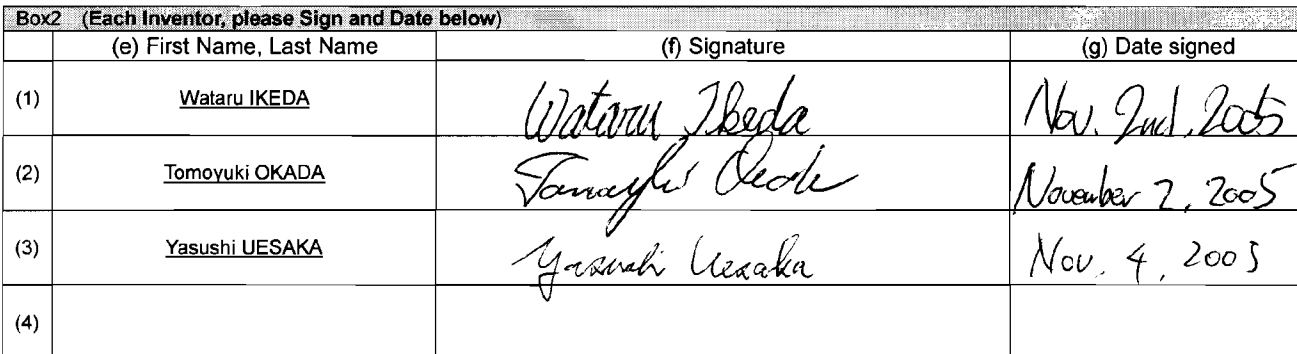 Box2 (Each Inventor, please Sign and Date below)
(e) First Name, Last Name (f) Signature (g) Date signed
(1) Wataru IKEDA Wataru Ikeda Nov. 2nd, 2005
(2) Tomoyuki OKADA Tomoyuki Okada November 2, 2005
(3) Yasushi UESAKA Yasushi Uesaka Nov. 4, 2005
(4)